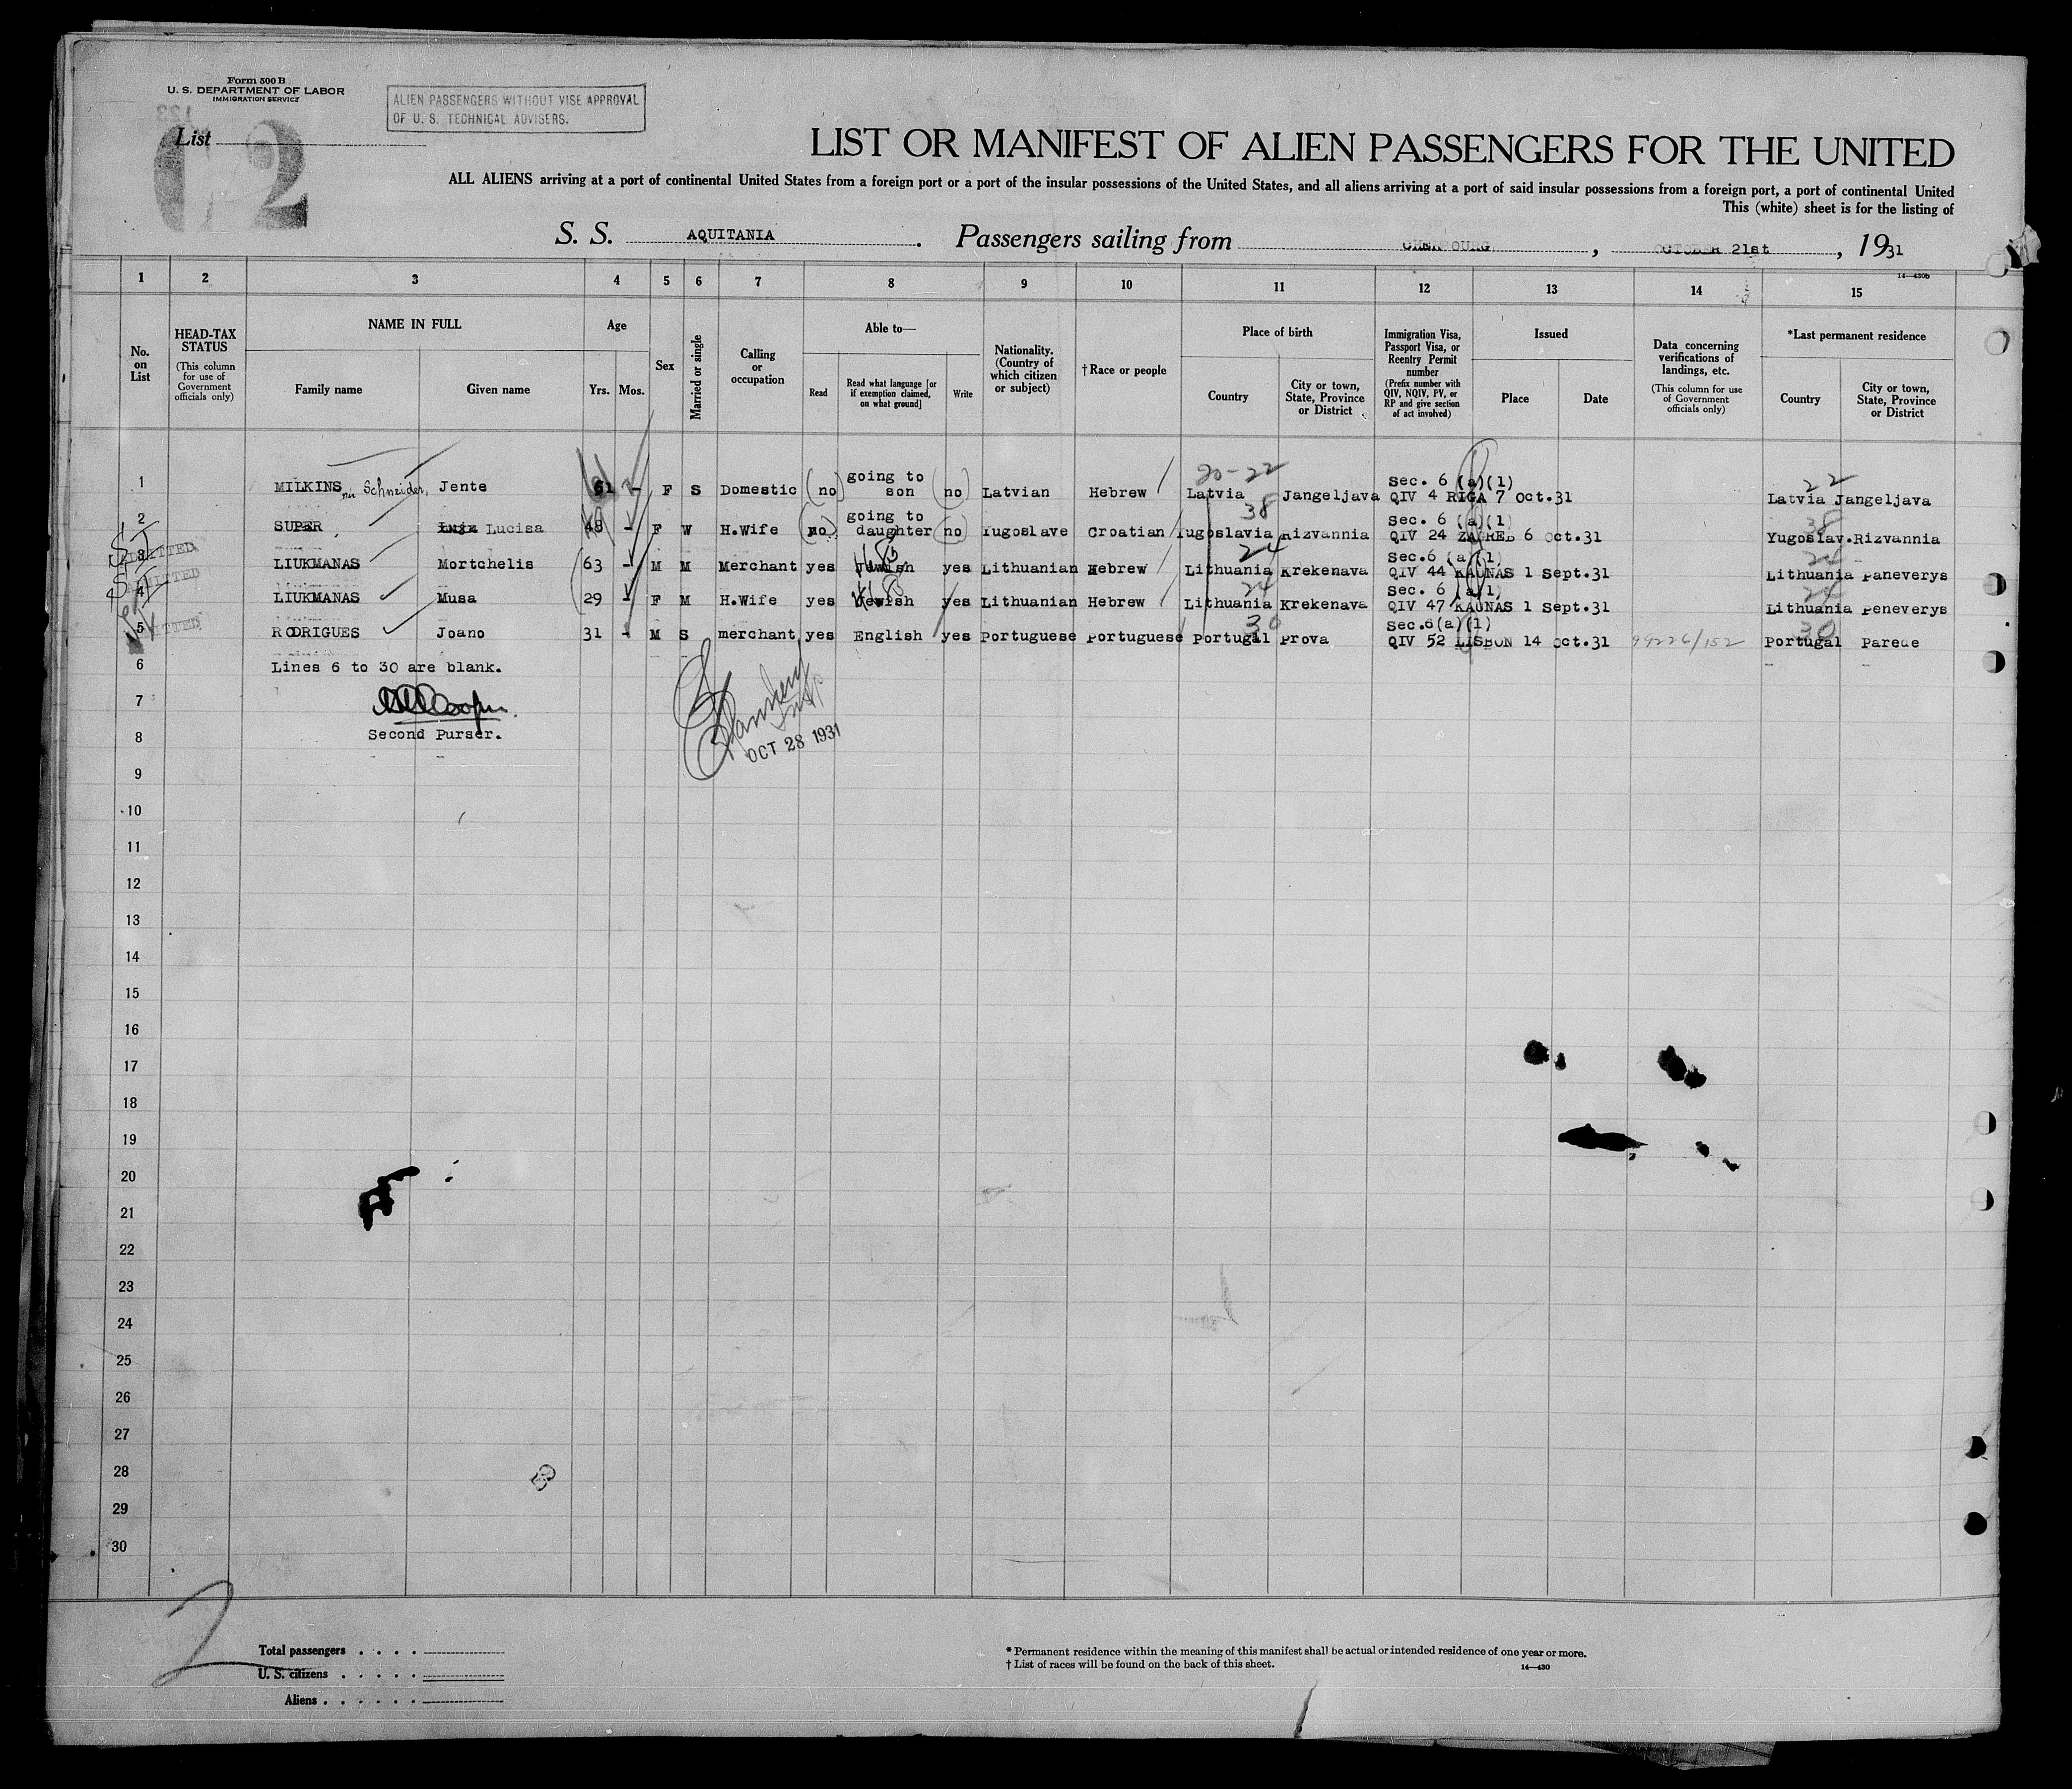 Form 500 B
U. S. DEPARTMENT OF LABOR
IMMIGRATION SERVICE
ALIEN PASSENGERS WITHOUT VISE APPROVAL
OF U. S. TECHNICAL ADVISERS.
List
2
LIST OR MANIFEST OF ALIEN PASSENGERS FOR THE UNITED
ALL ALIENS arriving at a port of continental United States from a foreign port or a port of the insular possessions of the United States, and all aliens arriving at a port of said insular possessions from a foreign port, a port of continental United
This (white) sheet is for the listing of
S. S. AQUITANIA. Passengers sailing from CHERBOURG, OCTOBER 21st, 1931
14—430b
1 2 3 4 5 6 7 8 9 10 11 12 13 14 15
No. on List
HEAD-TAX STATUS (This column for use of Government officials only)
NAME IN FULL
Family name Given name
Age
Yrs. Mos.
Sex
Married or single
Calling or occupation
Able to—
Read Read what language [or if exemption claimed, on what ground] Write
Nationality. (Country of which citizen or subject)
† Race or people
Place of birth
Country City or town, State, Province or District
Immigration Visa, Passport Visa, or Reentry Permit number (Prefix number with QIV, NQIV, PV, or RP and give section of act involved)
Issued
Place Date
Data concerning verifications of landings, etc. (This column for use of Government officials only)
*Last permanent residence
Country City or town, State, Province or District
going to 20-22 Sec. 6 (a)(1) 22
1 MILKINS née Schneider, Jente 61 - F S Domestic (no) son (no) Latvian Hebrew Latvia Jangeljava QIV 4 RIGA 7 Oct.31 Latvia Jangeljava
going to 38 Sec. 6 (a)(1) 38
2 SUPER Lucisa 48 - F W H.Wife (no) daughter (no) Yugoslave Croatian Yugoslavia Rizvannia QIV 24 ZAGREB 6 Oct.31 Yugoslav. Rizvannia
SI ADMITTED 24 Sec.6 (a)(1) 24
3 LIUKMANAS Mortchelis 63 - M M Merchant yes Jewish yes Lithuanian Hebrew Lithuania Krekenava QIV 44 KAUNAS 1 Sept.31 Lithuania Paneverys
SI ADMITTED 24 Sec. 6 (a)(1) 24
4 LIUKMANAS Musa 29 - F M H.Wife yes Jewish yes Lithuanian Hebrew Lithuania Krekenava QIV 47 KAUNAS 1 Sept.31 Lithuania Peneverys
30 Sec.6(a)(1) 30
5 RODRIGUES Joano 31 - M S merchant yes English yes Portuguese Portuguese Portugal Prova QIV 52 LISBON 14 Oct.31 99226/152 Portugal Parede
6 Lines 6 to 30 are blank.
7
8 Second Purser.
OCT 28 1931
9
10
11
12
13
14
15
16
17
18
19
20
21
22
23
24
25
26
27
28
29
30
2
Total passengers . . . .
U. S. citizens . . . . .
Aliens . . . . . .
* Permanent residence within the meaning of this manifest shall be actual or intended residence of one year or more.
† List of races will be found on the back of this sheet.
14—430